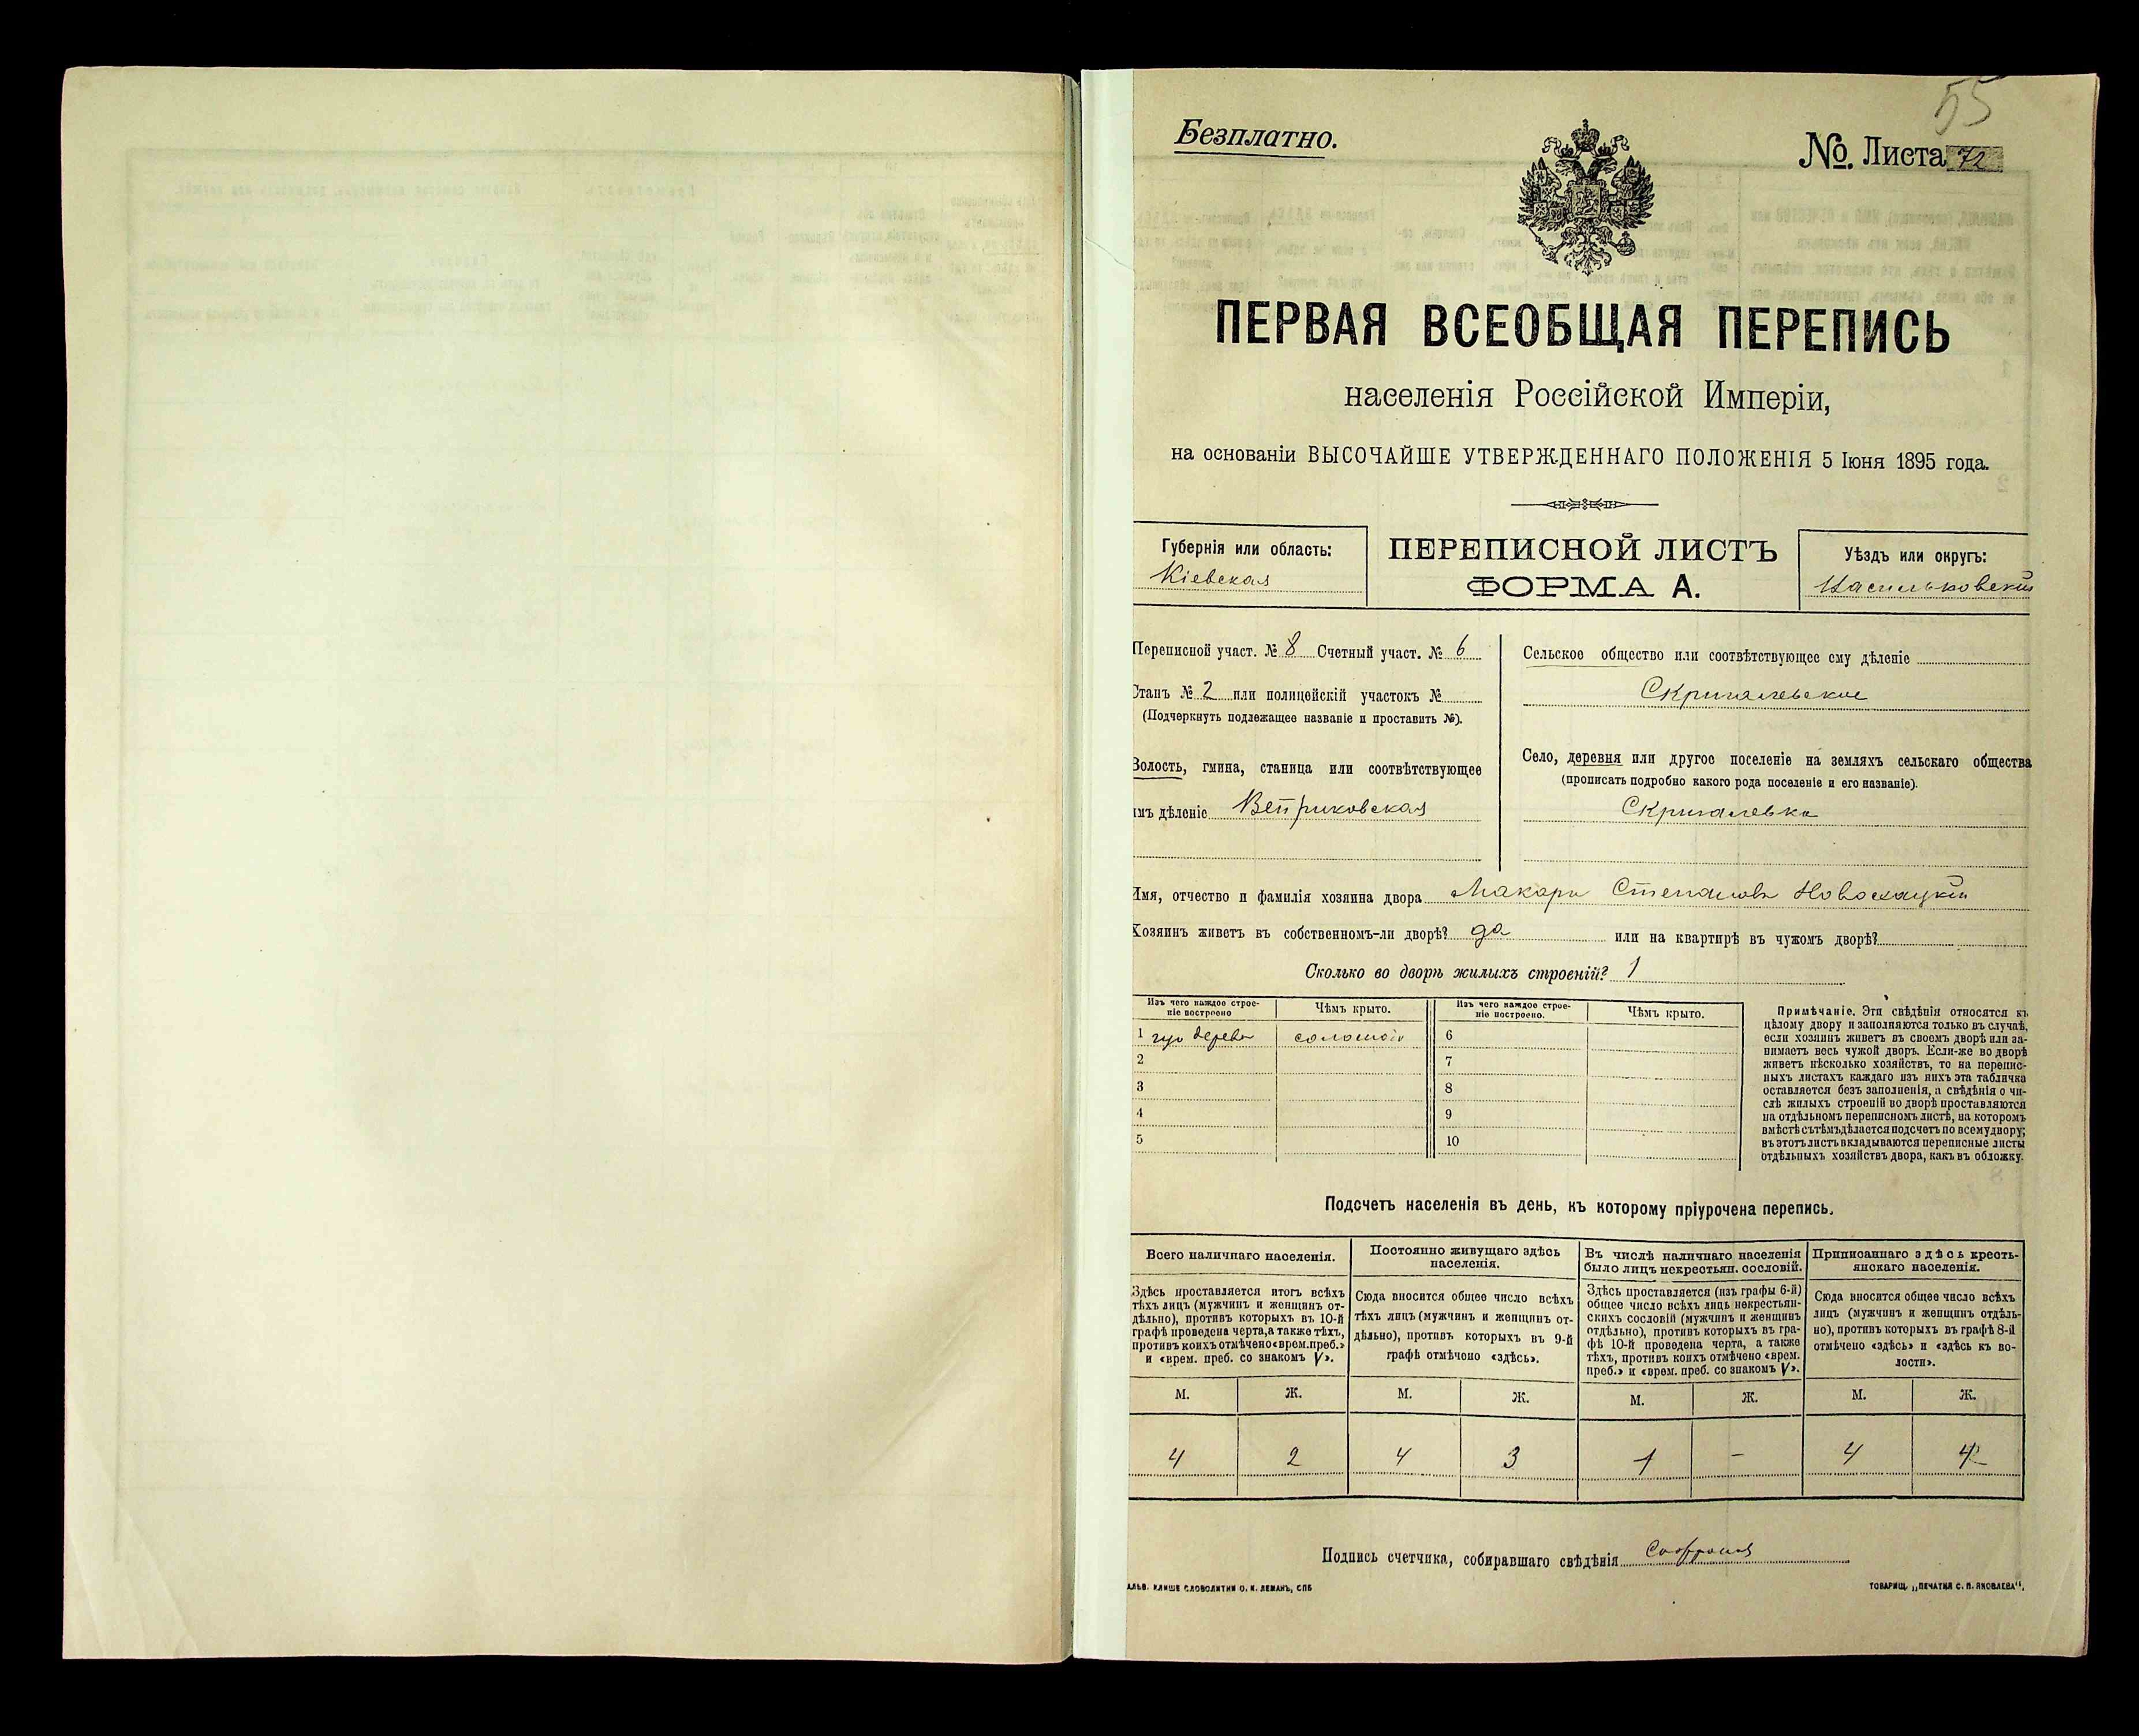 55
Безплатно.
№. Листа 72
ПЕРВАЯ ВСЕОБЩАЯ ПЕРЕПИСЬ
населенія Россійской Имперіи,
на основаніи ВЫСОЧАЙШЕ УТВЕРЖДЕННАГО ПОЛОЖЕНІЯ 5 Іюня 1895 года.
Губернія или область:
Кіевская
ПЕРЕПИСНОЙ ЛИСТЪ
ФОРМА А.
Уѣздъ или округъ:
Васильковскій
Переписной участ. № 8 Счетный участ. № 6
Станъ № 2 или полицейскій участокъ №
(Подчеркнуть подлежащее названіе и проставить №).
Волость, гмина, станица или соотвѣтствующее
имъ дѣленіе Веприковская
Сельское общество или соотвѣтствующее ему дѣленіе
Скригалевское
Село, деревня или другое поселеніе на земляхъ сельскаго общества
(прописать подробно какого рода поселеніе и его названіе).
Скригалевка
Имя, отчество и фамилія хозяина двора Макарій Степановъ
Хозяинъ живетъ въ собственномъ-ли дворѣ? да или на квартирѣ въ чужомъ дворѣ?
Сколько во дворѣ жилыхъ строеній? 1
Изъ чего каждое строе-
ніе построено
Чѣмъ крыто.
Изъ чего каждое строе-
ніе построено.
Чѣмъ крыто.
1 изъ дерева соломою
2
3
4
5
6
7
8
9
10
Примѣчаніе. Эти свѣдѣнія относятся къ
цѣлому двору и заполняются только въ случаѣ,
если хозяинъ живетъ въ своемъ дворѣ или за-
нимаетъ весь чужой дворъ. Если-же во дворѣ
живетъ нѣсколько хозяйствъ, то на перепис-
ныхъ листахъ каждаго изъ нихъ эта табличка
оставляется безъ заполненія, а свѣдѣнія о чи-
слѣ жилыхъ строеній во дворѣ проставляются
на отдѣльномъ переписномъ листѣ, на которомъ
вмѣстѣ съ тѣмъ дѣлается подсчетъ по всему двору;
въ этотъ листъ вкладываются переписные листы
отдѣльныхъ хозяйствъ двора, какъ въ обложку.
Подсчетъ населенія въ день, къ которому пріурочена перепись.
Всего наличнаго населенія.
Здѣсь проставляется итогъ всѣхъ
тѣхъ лицъ (мужчинъ и женщинъ от-
дѣльно), противъ которыхъ въ 10-й
графѣ проведена черта, а также тѣхъ,
противъ коихъ отмѣчено «врем. преб.»
и «врем. преб. со знакомъ V».
М. Ж.
4 2
Постоянно живущаго здѣсь
населенія.
Сюда вносится общее число всѣхъ
тѣхъ лицъ (мужчинъ и женщинъ от-
дѣльно), противъ которыхъ въ 9-й
графѣ отмѣчено «здѣсь».
М. Ж.
4 3
Въ числѣ наличнаго населенія
было лицъ некрестьян. сословій.
Здѣсь проставляется (изъ графы 6-й)
общее число всѣхъ лицъ некрестьян-
скихъ сословій (мужчинъ и женщинъ
отдѣльно), противъ которыхъ въ гра-
фѣ 10-й проведена черта, а также
тѣхъ, противъ коихъ отмѣчено «врем.
преб.» и «врем. преб. со знакомъ V».
М. Ж.
1 –
Приписаннаго здѣсь кресть-
янскаго населенія.
Сюда вносится общее число всѣхъ
лицъ (мужчинъ и женщинъ отдѣль-
но), противъ которыхъ въ графѣ 8-й
отмѣчено «здѣсь» и «здѣсь къ во-
лости».
М. Ж.
4 4
Подпись счетчика, собиравшаго свѣдѣнія
АЛЬВ. КЛИШЕ СЛОВОЛИТНИ О. И. ЛЕМАНЪ, СПБ
ТОВАРИЩ. „ПЕЧАТНЯ С. П. ЯКОВЛЕВА".